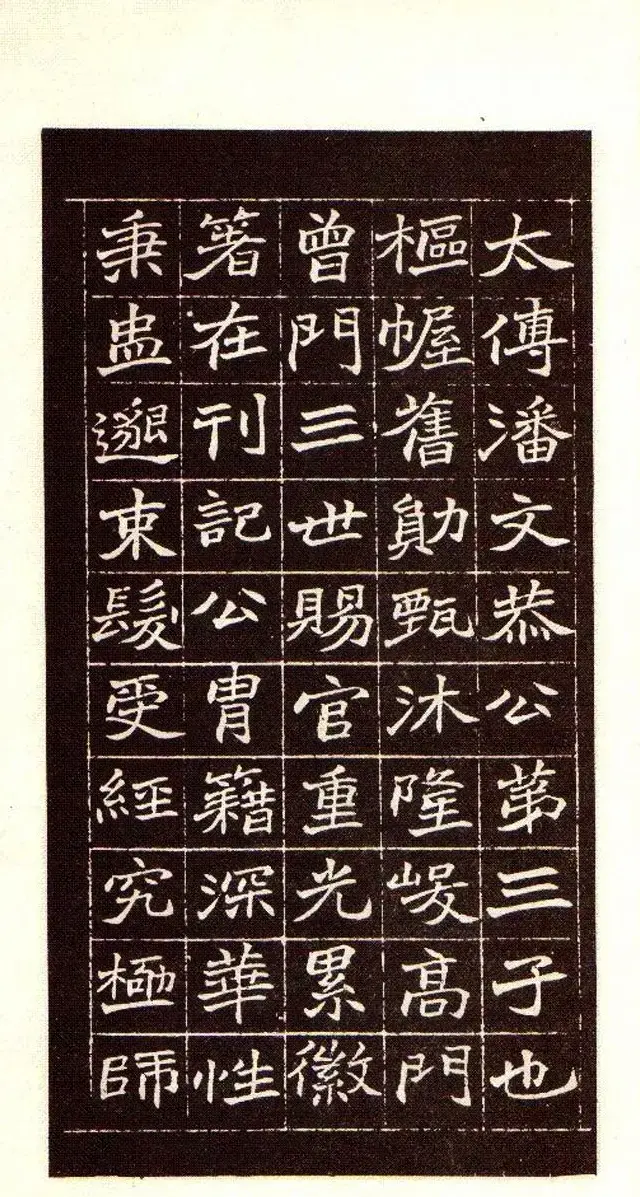 太傅潘文恭公苐三子也
樞幄舊勛甄沐隆崚高門
曾門三世賜官重光累徽
箸在刊記公胄籍深華性
秉盅邈束髮受經究極師